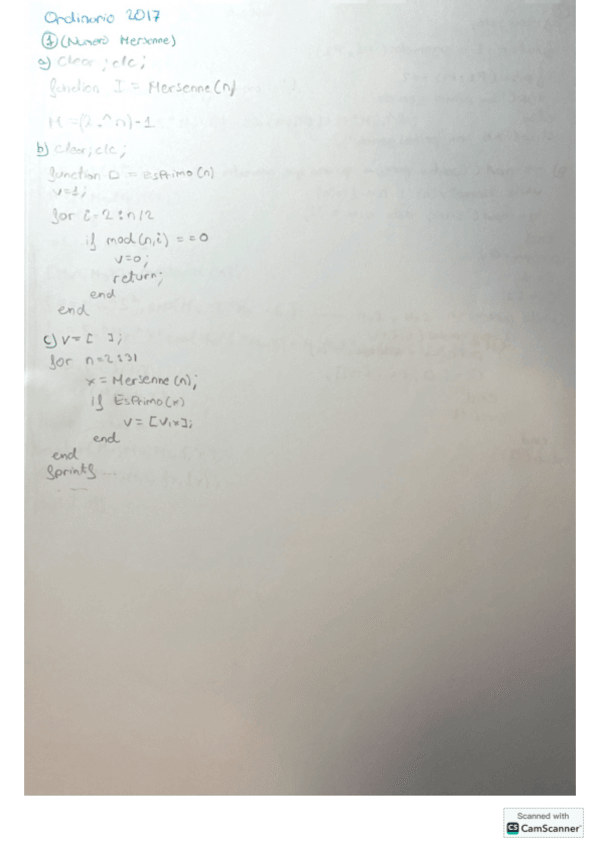 Ordinario 2017
① (Número Mersenne)
a) clear ; clc ;
function I = Mersenne(n)
M = (2.^n)-1
b) clear; clc ;
function D = EsPrimo(n)
v=1;
for i=2:n/2
if mod(n,i) ==0
v=0;
return;
end
end
c) v=[ ];
for n=2:31
x = Mersenne(n);
if EsPrimo(x)
v = [v,x];
end
end
fprintf ...
Scanned with
CS CamScanner